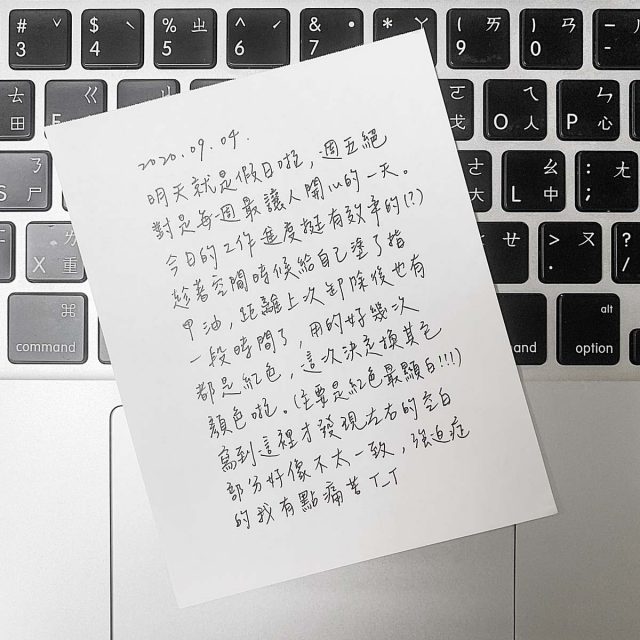 # ˇ ˋ % ㄓ ^ ˊ & * ㄚ ( ㄞ ) ㄢ
3 4 5 6 7 9 0 -
ㄊ ㄍ ㄛ ㄟ ㄣ
田 E 戈 O 人 P 心
ㄋ ㄠ ㄤ
S 尸 大 L 中 : ;
ㄌ ㄝ > ㄡ ? ㄥ
X 重 . /
⌘ alt
command and option
2020.09.04.
明天就是假日啦，週五絕
對是每週最讓人開心的一天。
今日的工作進度挺有效率的(?)
趁著空閒時候給自己塗了指
甲油，距離上次卸除後也有
一段時間了，用的好幾次
都是紅色，這次決定換其它
顏色啦。(主要是紅色最顯白!!!)
寫到這裡才發現左右的空白
部分好像不太一致，強迫症
的我有點痛苦T_T